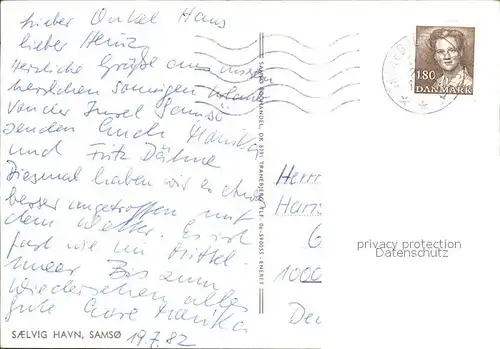 Lieber Onkel Hans
lieber Heinz
Herzliche Grüße aus unserem
herrlichen sonnigen Urlaub
von der Insel Samsö
senden Euch Monika
und Fritz Dähne
Diesmal haben wir es etwas
besser angetroffen mit
dem Wetter. Es ist
fast wie im Mittel-
meer Bis zum
Wiedersehen alles
gute Eure Monika
19.7.82
SÆLVIG HAVN, SAMSØ
DK 8791 TRANEBJERG TLF. ENERET
1.80
DANMARK
Herr
Hans
1000
privacy protection
Datenschutz